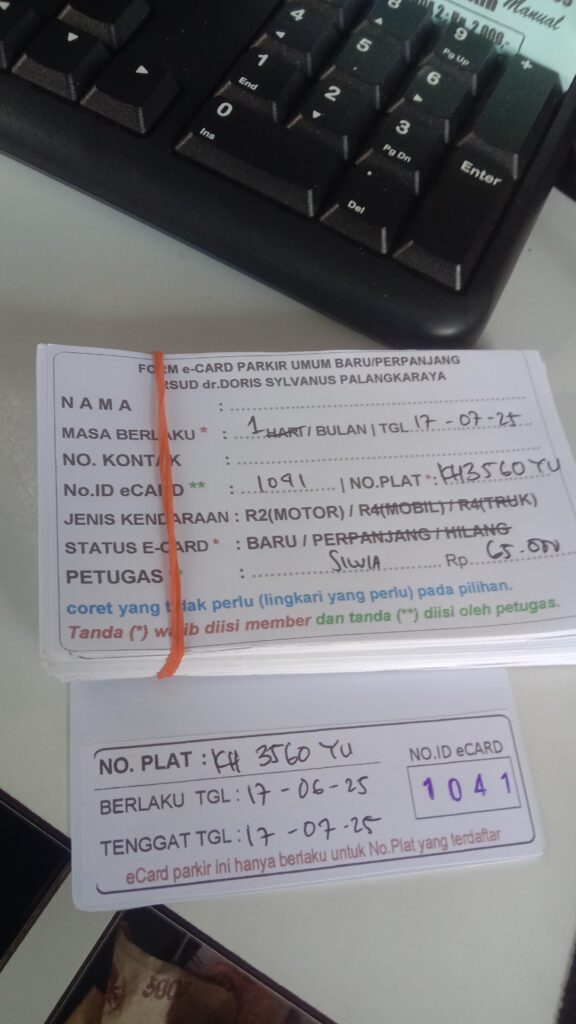 Manual
2 : Rp 2.000,-
4
8
9
Pg Up
+
1
End
5
6
0
Ins
2
3
Pg Dn
Enter
.
Del
FORM e-CARD PARKIR UMUM BARU/PERPANJANG
RSUD dr.DORIS SYLVANUS PALANGKARAYA
NAMA :
MASA BERLAKU * : 1 HARI / BULAN | TGL 17 - 07 - 25
NO. KONTAK :
No.ID eCARD ** : 1041 | NO.PLAT * : KH3560 YU
JENIS KENDARAAN : R2(MOTOR) / R4(MOBIL) / R4(TRUK)
STATUS E-CARD * : BARU / PERPANJANG / HILANG
PETUGAS : SILVIA Rp. 65.000
coret yang tidak perlu (lingkari yang perlu) pada pilihan.
Tanda (*) wajib diisi member dan tanda (**) diisi oleh petugas.
NO. PLAT : KH 3560 YU
NO.ID eCARD
BERLAKU TGL : 17 - 06 - 25
1041
TENGGAT TGL : 17 - 07 - 25
eCard parkir ini hanya berlaku untuk No.Plat yang terdaftar